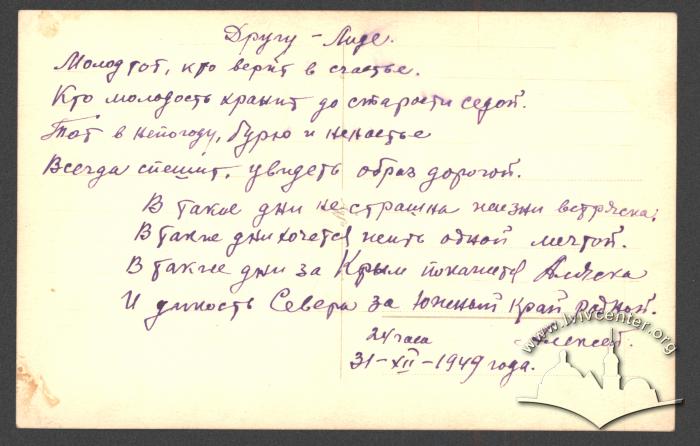 Другу – Лиде.
Молод тот, кто верит в счастье.
Кто молодость хранит до старости седой.
Тот в непогоду, бурю и ненастье
Всегда спешит, увидеть образ дорогой.
В такие дни не страшна жизни встряска;
В такие дни хочется жить одной мечтой.
В такие дни за Крым покажется Аляска
И дикость Севера за Южный край родной.
24 часа Алексей.
31–XII–1949 года.
www.lvivcenter.org